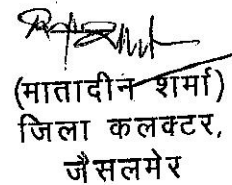 (मातादीन शर्मा)
जिला कलक्टर,
जैसलमेर